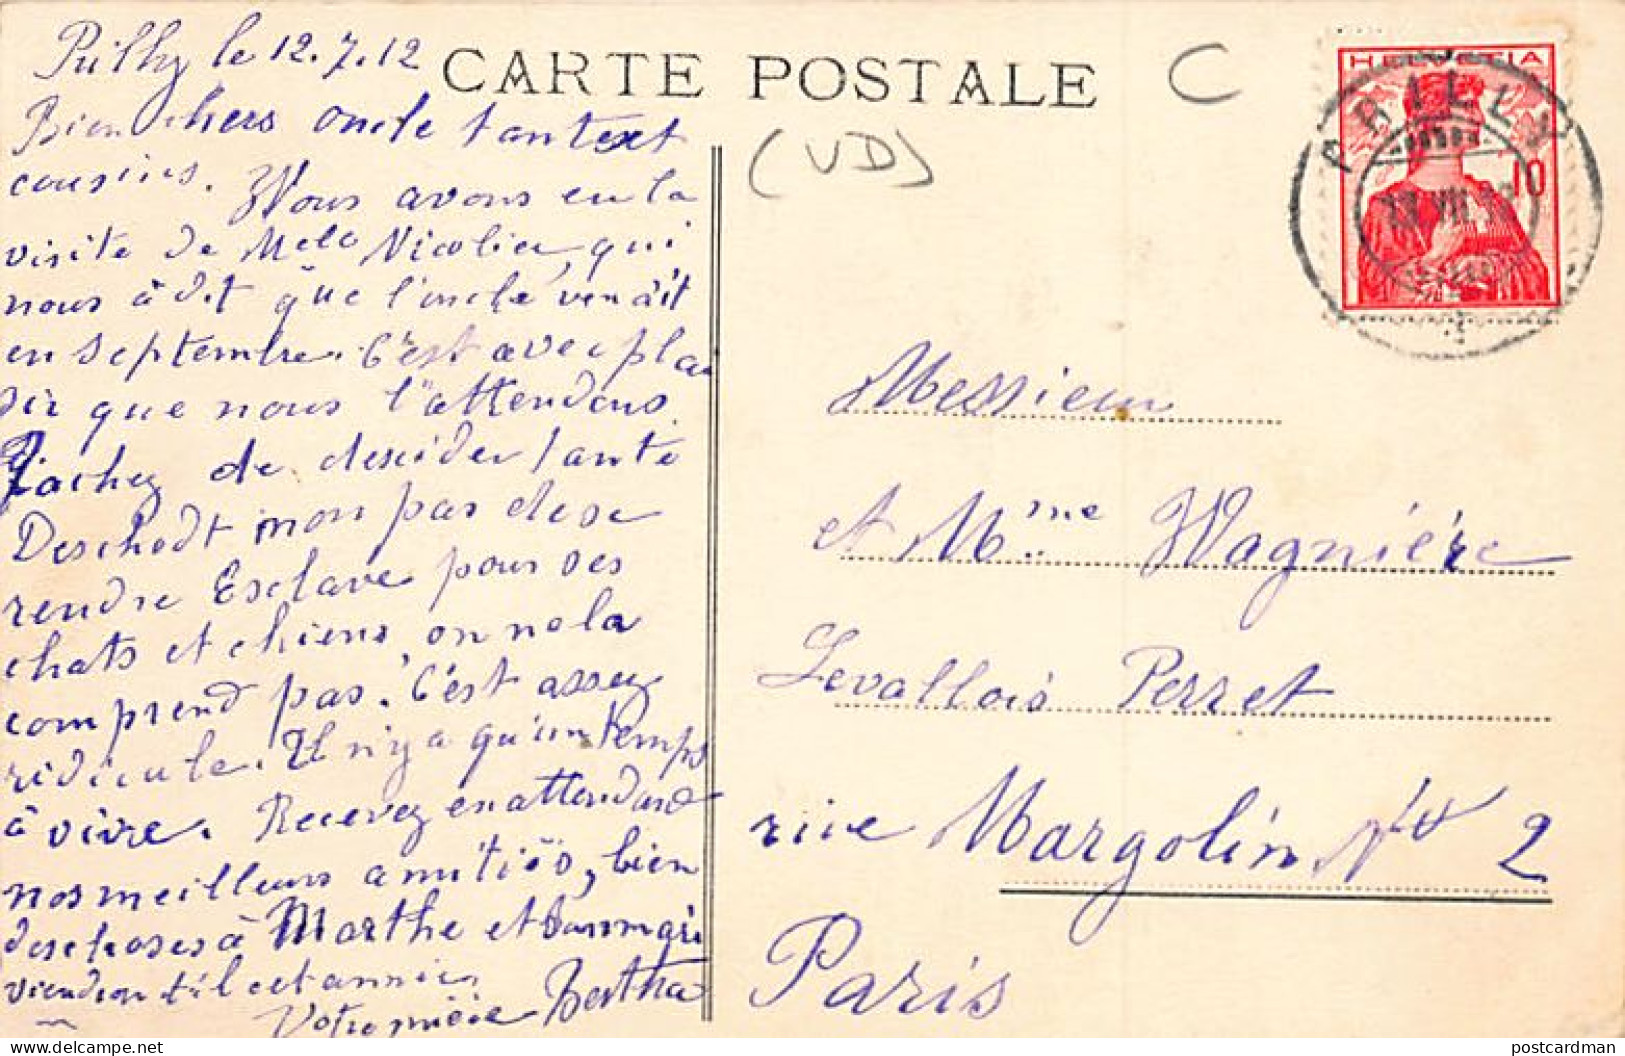 Prilly le 12.7.12
Bien chers oncle tante et
cousins. Nous avons eu la
visite de Melle Nicolier, qui
nous à dit que l'oncle venait
en septembre. C'est avec plai
sir que nous l'attendons.
Tachez de desider tante
Deschodt mon pas de se
rendre Esclave pour des
chats et chiens, on ne la
comprend pas. C'est assez
ridicule. Il n'y a qu'un temps
à vivre. Recevez en attendant
nos meilleurs amitiés, bien
des choses à Marthe et son mari
viendron t'il cet année
Votre nièce Bertha
CARTE POSTALE
C
(VD)
HELVETIA
10
PRILLY
Messieur
et Mme Wagnière
Levallois Perret
rue Margolin No 2
Paris
postcardman